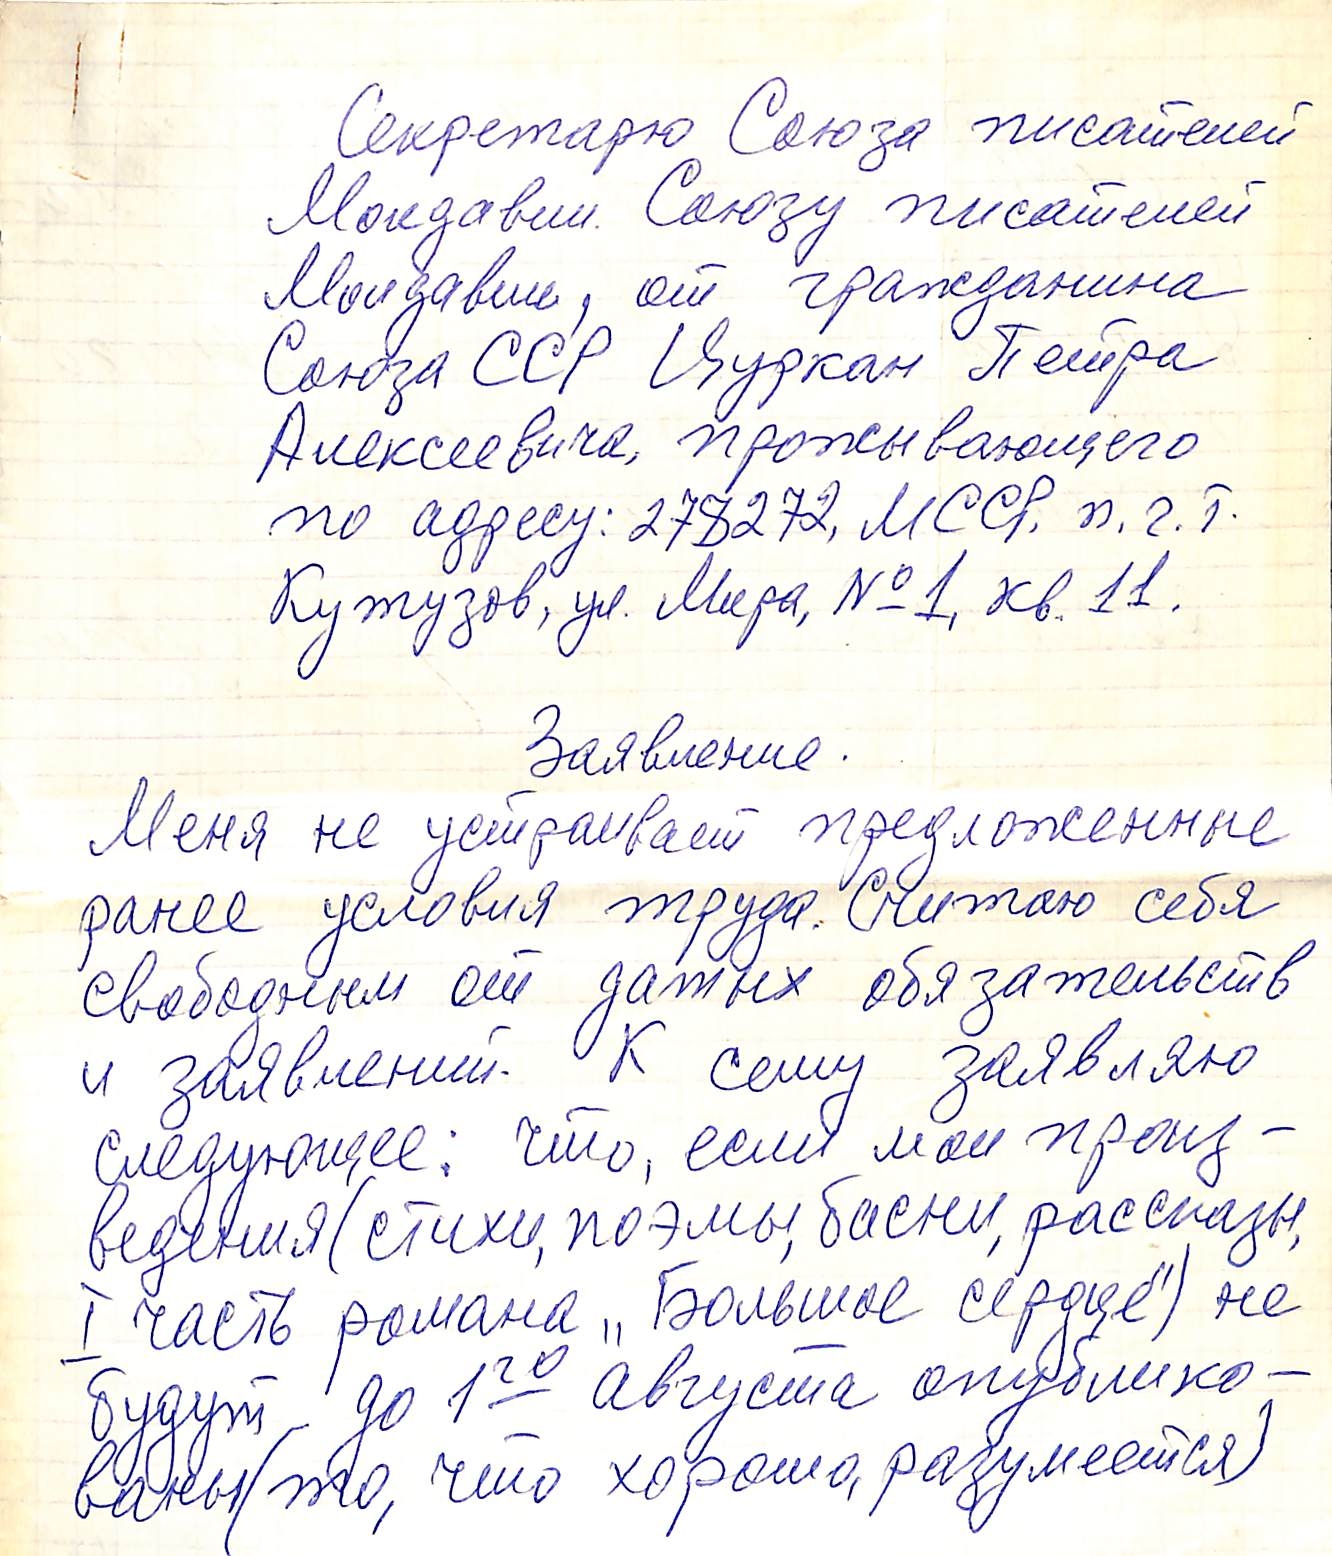 Секретарю Союза писателей
Молдавии. Союзу писателей
Молдавии, от гражданина
Союза ССР Цуркан Петра
Алексеевича, проживающего
по адресу: 278272, МССР, п.г.т.
Кутузов, ул. Мира, № 1, кв. 11.
Заявление.
Меня не устраивает предложенные
ранее условия труда. Считаю себя
свободным от данных обязательств
и заявлений. К сему заявляю
следующее: что, если мои произ-
ведения (стихи, поэмы, басни, рассказы,
I часть романа „Большое сердце") не
будут до 1го августа опублико-
ваны (то, что хорошо, разумеется)